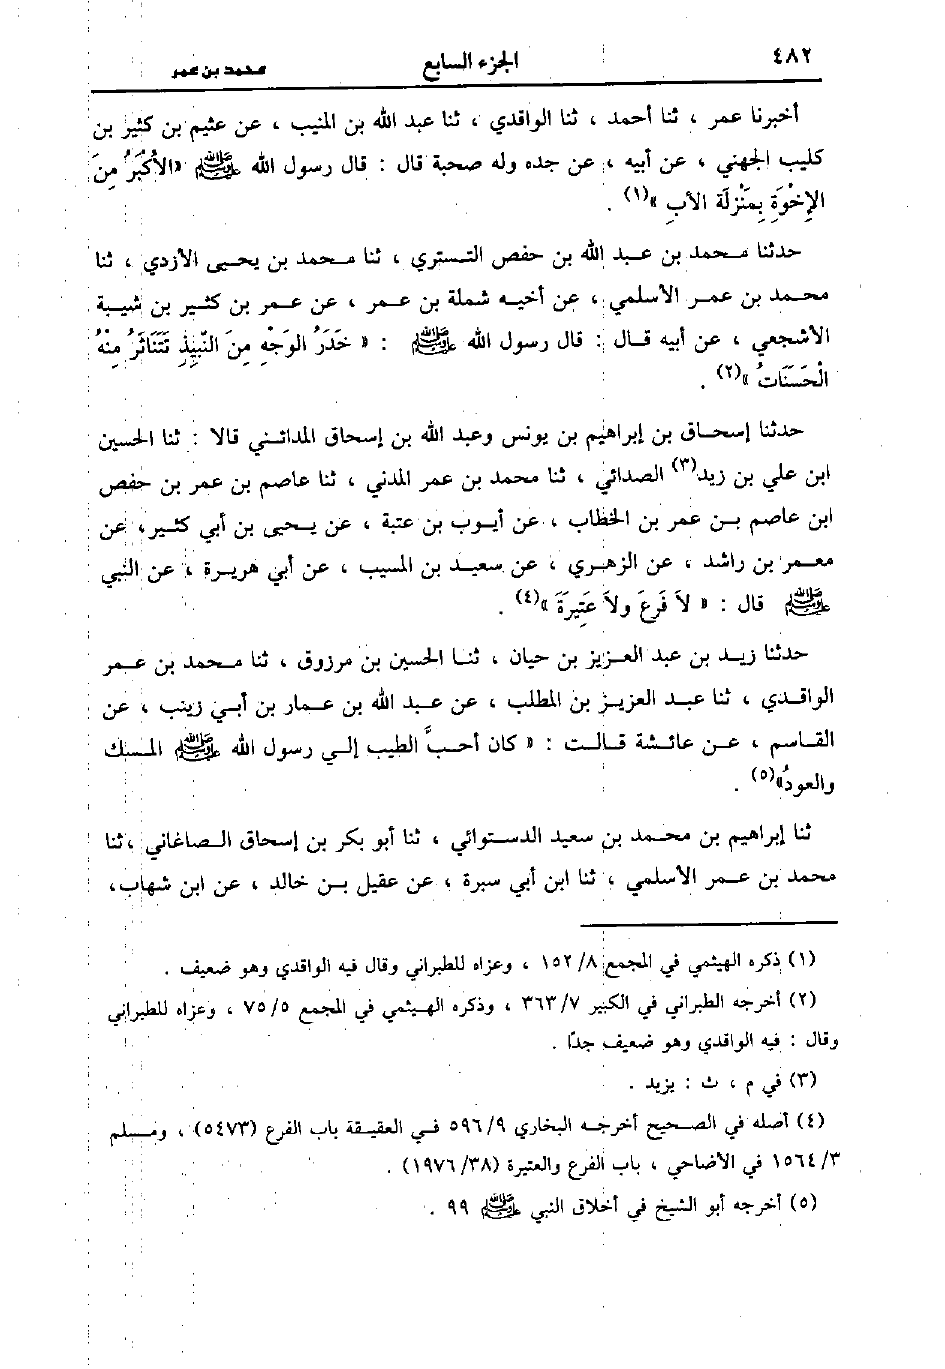 ٤٨٢ الجزء السابع محمد بن عمر
أخبرنا عمر ، ثنا أحمد ، ثنا الواقدي ، ثنا عبد الله بن المنيب ، عن عثيم بن كثير بن
كليب الجهني ، عن أبيه ، عن جده وله صحبة قال : قال رسول الله ﷺ «الأكْبَرُ مِنَ
الإِخْوَةِ بِمَنْزِلَة الأبِ »(١) .
حدثنا محمد بن عبد الله بن حفص التستري ، ثنا محمد بن يحيى الأزدي ، ثنا
محمد بن عمر الأسلمي ، عن أخيه شملة بن عمر ، عن عمر بن كثير بن شيبة
الأشجعي ، عن أبيه قال : قال رسول الله ﷺ : « خَدَرُ الوَجْهِ مِنَ النَّبِيذِ تَتَنَاثَرُ مِنْهُ
الْحَسَنَاتُ »(٢) .
حدثنا إسحاق بن إبراهيم بن يونس وعبد الله بن إسحاق المدائني قالا : ثنا الحسين
ابن علي بن زيد(٣) الصدائي ، ثنا محمد بن عمر المدني ، ثنا عاصم بن عمر بن حفص
ابن عاصم بن عمر بن الخطاب ، عن أيوب بن عتبة ، عن يحيى بن أبي كثير، عن
معمر بن راشد ، عن الزهري ، عن سعيد بن المسيب ، عن أبي هريرة ، عن النبي
ﷺ قال : « لاَ فَرَعَ ولاَ عَتِيرَةَ »(٤) .
حدثنا زيد بن عبد العزيز بن حيان ، ثنا الحسين بن مرزوق ، ثنا محمد بن عمر
الواقدي ، ثنا عبد العزيز بن المطلب ، عن عبد الله بن عمار بن أبي زينب ، عن
القاسم ، عن عائشة قالت : « كان أحبَّ الطيب إلى رسول الله ﷺ المسك
والعودُ»(٥) .
ثنا إبراهيم بن محمد بن سعيد الدستوائي ، ثنا أبو بكر بن إسحاق الصاغاني ،ثنا
محمد بن عمر الأسلمي ، ثنا ابن أبي سبرة ، عن عقيل بن خالد ، عن ابن شهاب،
(١) ذكره الهيثمي في المجمع ١٥٢/٨ ، وعزاه للطبراني وقال فيه الواقدي وهو ضعيف .
(٢) أخرجه الطبراني في الكبير ٣٦٣/٧ ، وذكره الهيثمي في المجمع ٧٥/٥ ، وعزاه للطبراني
وقال : فيه الواقدي وهو ضعيف جدًا .
(٣) في م ، ث : يزيد .
(٤) أصله في الصحيح أخرجه البخاري ٥٩٦/٩ في العقيقة باب الفرع (٥٤٧٣) ، ومسلم
١٥٦٤/٣ في الأضاحي ، باب الفرع والعتيرة (١٩٧٦/٣٨) .
(٥) أخرجه أبو الشيخ في أخلاق النبي ﷺ ٩٩ .